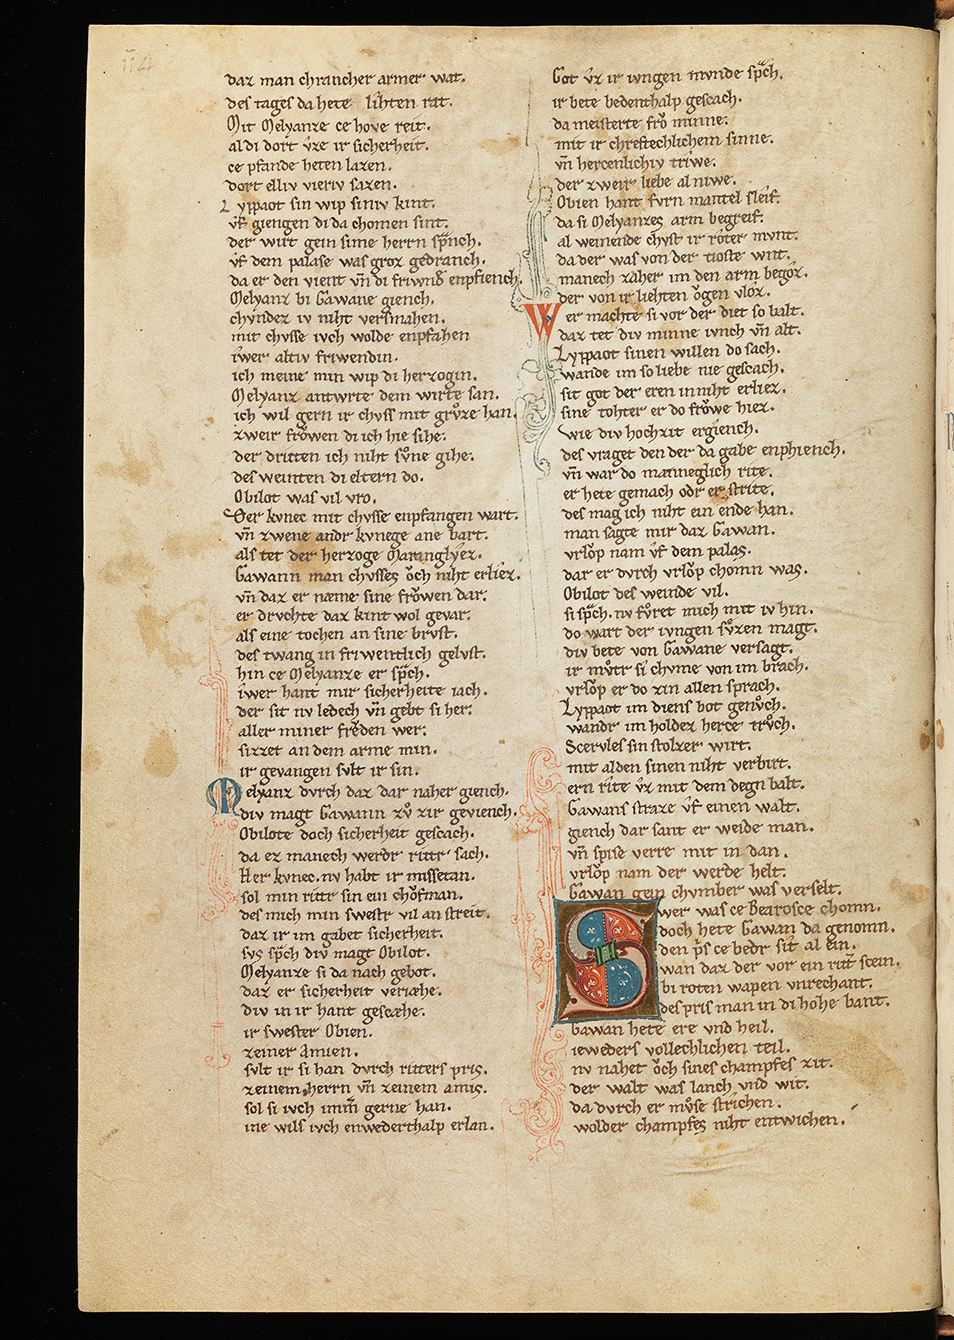 daz man chrancher armer wat.
des tages da hete lihten rat.
Mit Melyanze ce hove reit.
al di dort v̄ze ir sicherheit.
ce pfande heten lazen.
dort elliv vieriv sazen.
Lyppaot sin wip siniv kint.
vf giengen di da chomen sint.
der wirt gein sime herrn sp̄nch.
vf dem palase was groz gedranch.
da er den vient vn̄ di friwnd enpfiench.
Melyanz bi Gawane giench.
chvndez iv niht versmahen.
mit chvsse ivch wolde enpfahen
iwer altiv friwendin.
ich meine min wip di herzogin.
Melyanz antwrte dem wirte san.
ich wil gern ir chvss mit grvͦze han.
zweir froͮwen di ich hie sihe.
der dritten ich niht svͦne gihe.
des weinten di eltern do.
Obilot was vil vro.
Der kvnec mit chvsse enpfangen wart.
vn̄ zwene andr kvnege ane bart.
als tet der herzoge Maranglyez.
Gawann man chvsses oͮch niht erliez.
vn̄ daz er næme sine froͮwen dar.
er drvchte daz kint wol gevar.
als eine tochen an sine brvst.
des twang in friwentlich gelvst.
hin ce Melyanze er sp̄ch.
iwer hant mir sicherheite iach.
der sit nv ledech vn̄ gebt si her.
aller miner freͮden wer.
sizzet an dem arme min.
ir gevangen svlt ir sin.
Melyanz dvrch daz dar naher giench.
div magt Gawann zvͦ zir geviench.
Obilote doch sicherheit gescach.
da ez manech werdr rittr sach.
Her kvnec. nv habt ir missetan.
sol min rittr sin ein choͮfman.
des mich min swestr vil an streit.
daz ir im gabet sicherheit.
svs sp̄ch div magt Obilot.
Melyanze si da nach gebot.
daz er sicherheit veriæhe.
div in ir hant gescæhe.
ir swester Obien.
zeiner Amien.
svlt ir si han dvrch ritters pris.
zeinem herrn vn̄ zeinem amis.
sol si ivch imm̄ gerne han.
ine wils ivch enwederthalp erlan.
Got v̄z ir ivngen mvnde sp̄ch.
ir bete bedenthalp gescach.
da meisterte froͮ minne.
mit ir chreftechlichem sinne.
vn̄ hercenlichiv triwe.
der zweir liebe al niwe.
Obien hant fvrn mantel sleif.
da si Melyanzes arm begreif.
al weinende chvst ir roter mvnt.
da der was von der tioste wnt.
manech zaher im den arm begoz.
der von ir liehten oͮgen vloz.
Wer machte si vor der diet so balt.
daz tet div minne ivnch vn̄ alt.
Lyppaot sinen willen do sach.
wande im so liebe nie gescach.
sit got der eren in niht erliez.
sine tohter er do froͮwe hiez.
wie div hochzit ergiench.
des vraget den der da gabe enphiench.
vn̄ war do manneglich rite.
er hete gemach odr er strite.
des mag ich niht ein ende han.
man sagte mir daz Gawan.
vrloͮp nam vf dem palas.
dar er dvrch vrloͮp chomn was.
Obilot des weinde vil.
si sp̄ch. nv fvͦret mich mit iv hin.
do wart der ivngen svͦzen magt.
div bete von Gawane versagt.
ir mvͦtr si chvme von im brach.
vrloͮp er do zin allen sprach.
Lyppaot im diens bot genvͦch.
wandr im holdez herce trvͦch.
Scervles sin stolzer wirt.
mit alden sinen niht verbirt.
ern rite v̄z mit dem degn balt.
Gawans straze vf einen walt.
giench dar sant er weide man.
vn̄ spise verre mit in dan.
vrloͮp nam der werde helt.
Gawan gein chvmber was verselt.
Swer was ce Bearosce chomn.
doch hete Gawan da genomn.
den p̄s ce bedr sit al ein.
wan daz der vor ein ritt̄ scein.
bi roten wapen vnrechant.
des pris man in di hohe bant.
Gawan hete ere vnd heil.
ieweders vollechlichen teil.
nv nahet oͮch sines champfes zit.
der walt was lanch vnd wit.
da dvrch er mvͦse strichen.
wolder champfes niht entwichen.